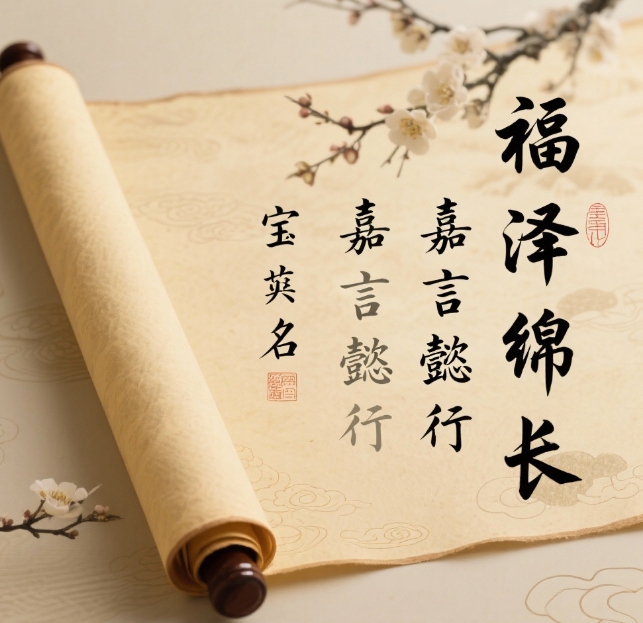 福泽绵长
嘉言懿行
嘉言懿行
宝英名